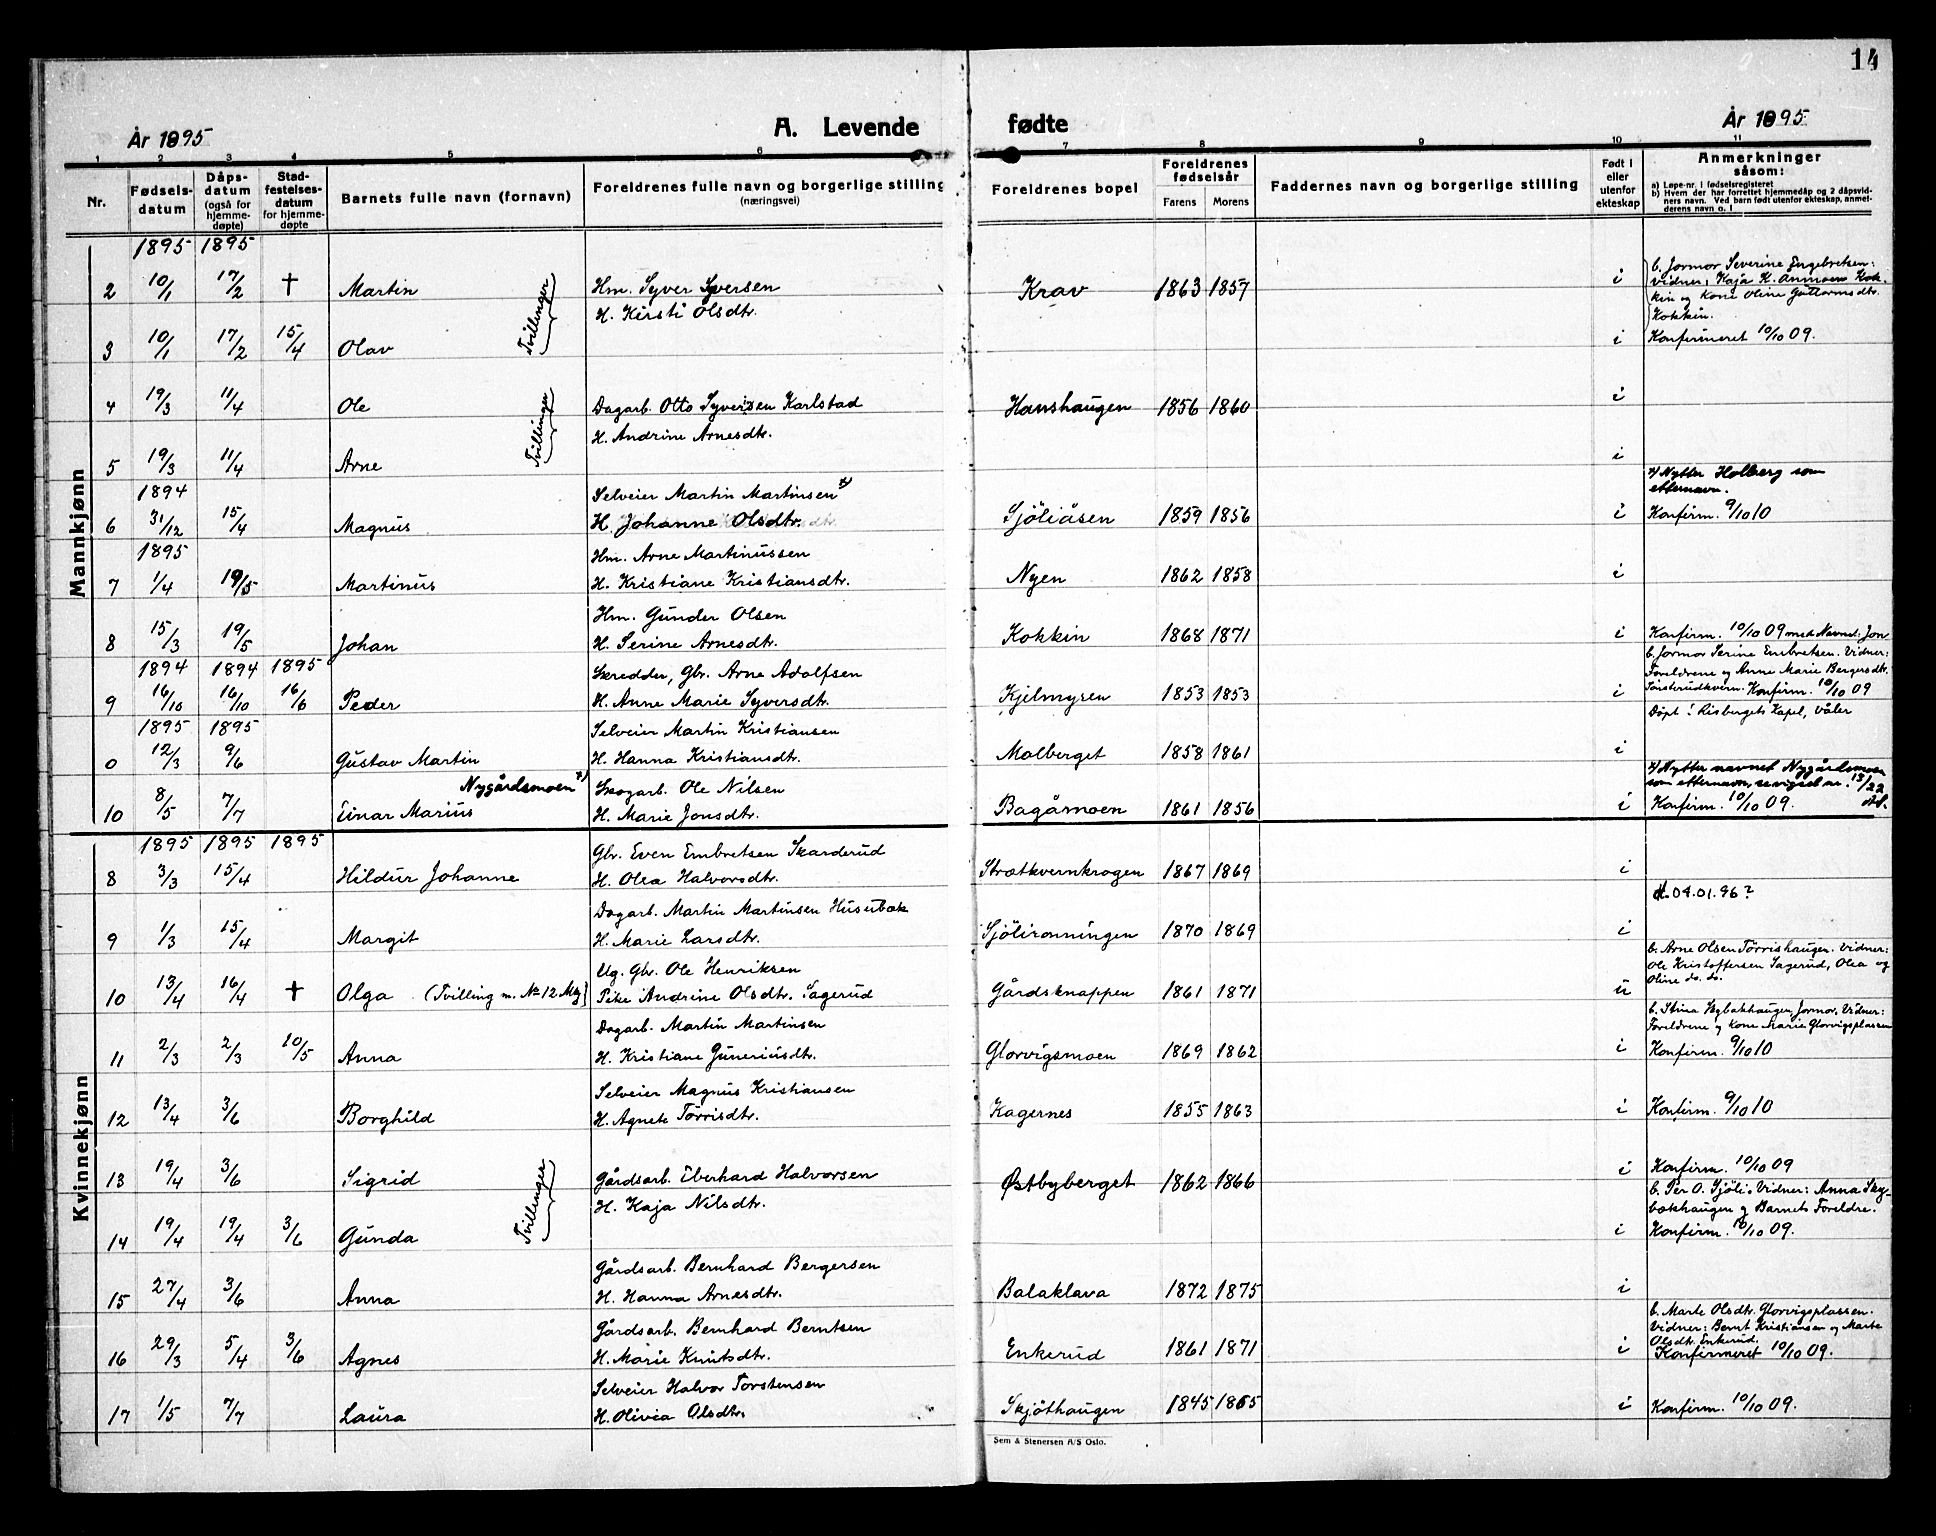 14
År 1895 A. Levende fødte År 1895
1 2 3 4 5 6 7 8 9 10 11
Nr. | Fødsels-datum | Dåps-datum (også for hjemme-døpte) | Stad-festelses-datum for hjemme-døpte | Barnets fulle navn (fornavn) | Foreldrenes fulle navn og borgerlige stilling (næringsvei) | Foreldrenes bopel | Foreldrenes fødselsår Farens Morens | Faddernes navn og borgerlige stilling | Født i eller utenfor ekteskap | Anmerkninger såsom: a) Løpe-nr. i fødselsregisteret b) Hvem der har forrettet hjemmedåp og 2 dåpsvidners navn. Ved barn født utenfor ekteskap, anmelderens navn o. l
Mannkjønn
1895 1895
2 10/1 17/2 † Martin Tvillinger Hm. Syver Syversen H. Kirsti Olsdtr. Krav 1863 1857 i b. Jormor Severine Engebretsen: vidner, Kaja K. Anmoen Kokkin og Kone Oline Guttormsdtr. Kokkin.
3 10/1 17/2 15/4 Olav i Konfirmeret 10/10 09.
4 19/3 11/4 Ole Tvillinger Dagarb. Otto Syversen Karlstad H. Andrine Arnesdtr. Hanshaugen 1856 1860 i
5 19/3 11/4 Arne i
1894 x) Nytter Holberg som etternavn.
6 31/12 15/4 Magnus Selveier Martin Martinsen x) H. Johanne Olsdtr. Sjöliåsen 1859 1856 i Konfirm. 9/10 10
1895
7 1/4 19/5 Martinus Hm. Arne Martinussen H. Kristiane Kristiansdtr. Nyen 1862 1858 i
8 15/3 19/5 Johan Hm. Gunder Olsen H. Serine Arnesdtr. Kokkin 1868 1871 i Konfirm. 10/10 09 med Navnet: Jon
1894 1894 1895
9 16/10 16/10 16/6 Peder Skredder, Gbr. Arne Adolfsen H. Anne Marie Syversdtr. Kjelmyren 1853 1853 i b. Jormor Serine Embretsen. Vidner: Foreldrene og Anne Marie Bergersdtr. Tørsterudkvern. Konfirm. 10/10 09
1895 1895
0 12/3 9/6 Gustav Martin Selveier Martin Kristiansen H. Hanna Kristiansdtr. Malberget 1858 1861 i Døpt i Risbergets Kapel, Våler
10 8/5 7/7 Einar Marius Nygårdsmoen x) Skogarb. Ole Nilsen H. Marie Jonsdtr. Bagåmoen 1861 1856 i x) Nytter navnet Nygårdsmoen som etternavn, 13/22 Konfirm. 10/10 09.
Kvinnekjønn
1895 1895 1895
8 3/3 15/4 Hildur Johanne Gbr. Even Embretsen Skarderud H. Olea Halvorsdtr. Strætkvernkrogen 1867 1869 i
d. 04.01.96?
9 1/3 15/4 Margit Dagarb. Martin Martinsen Husubæk H. Marie Larsdtr. Sjölirønningen 1870 1869 i
10 13/4 16/4 † Olga (Tvilling m. No 12 Mkj) Ug. Gbr. Ole Henriksen Pike Andrine Olsdtr. Sagerud Gårdsknappen 1861 1871 u b. Arne Olsen Tørrishaugen. Vidner: Ole Kristoffersen Sagerud, Olea og Oline ds. ds.
11 2/3 2/3 10/5 Anna Dagarb. Martin Martinsen H. Kristiane Guneriusdtr. Glorvigsmoen 1869 1862 i b. Stina Skybakhaugen, Jormor, Vidner: Foreldrene og Kone Marie Glorvigsplassen Konfirm. 9/10 10
12 13/4 3/6 Borghild Selveier Magnus Kristiansen H. Agnete Tørrisdtr. Kagernes 1855 1863 i Konfirm. 9/10 10
13 19/4 3/6 Sigrid Tvillinger Gårdsarb. Eberhard Halvorsen H. Kaja Nilsdtr. Østbyberget 1862 1866 i Konfirm. 10/10 09
14 19/4 19/4 3/6 Gunda i b. Per O. Sjöli. Vidner: Anna Skybakhaugen og Barnets Foreldre. Konfirm. 10/10 09.
15 27/4 3/6 Anna Gårdsarb. Bernhard Bergersen H. Hanna Arnesdtr. Balaklava 1872 1875 i
16 29/3 5/4 3/6 Agnes Gårdsarb. Bernhard Berntsen H. Marie Knutsdtr. Enkerud 1861 1871 i b. Marte Olsdtr. Glorvigsplassen. Vidner: Bernt Kristiansen og Marte Olsdtr. Enkerud. Konfirmeret 10/10 09.
17 1/5 7/7 Laura Selveier Halvor Torstensen H. Olivia Olsdtr. Skjöthaugen 1845 1865 i Konfirm. 10/10 09.
Sem & Stenersen A/S Oslo.